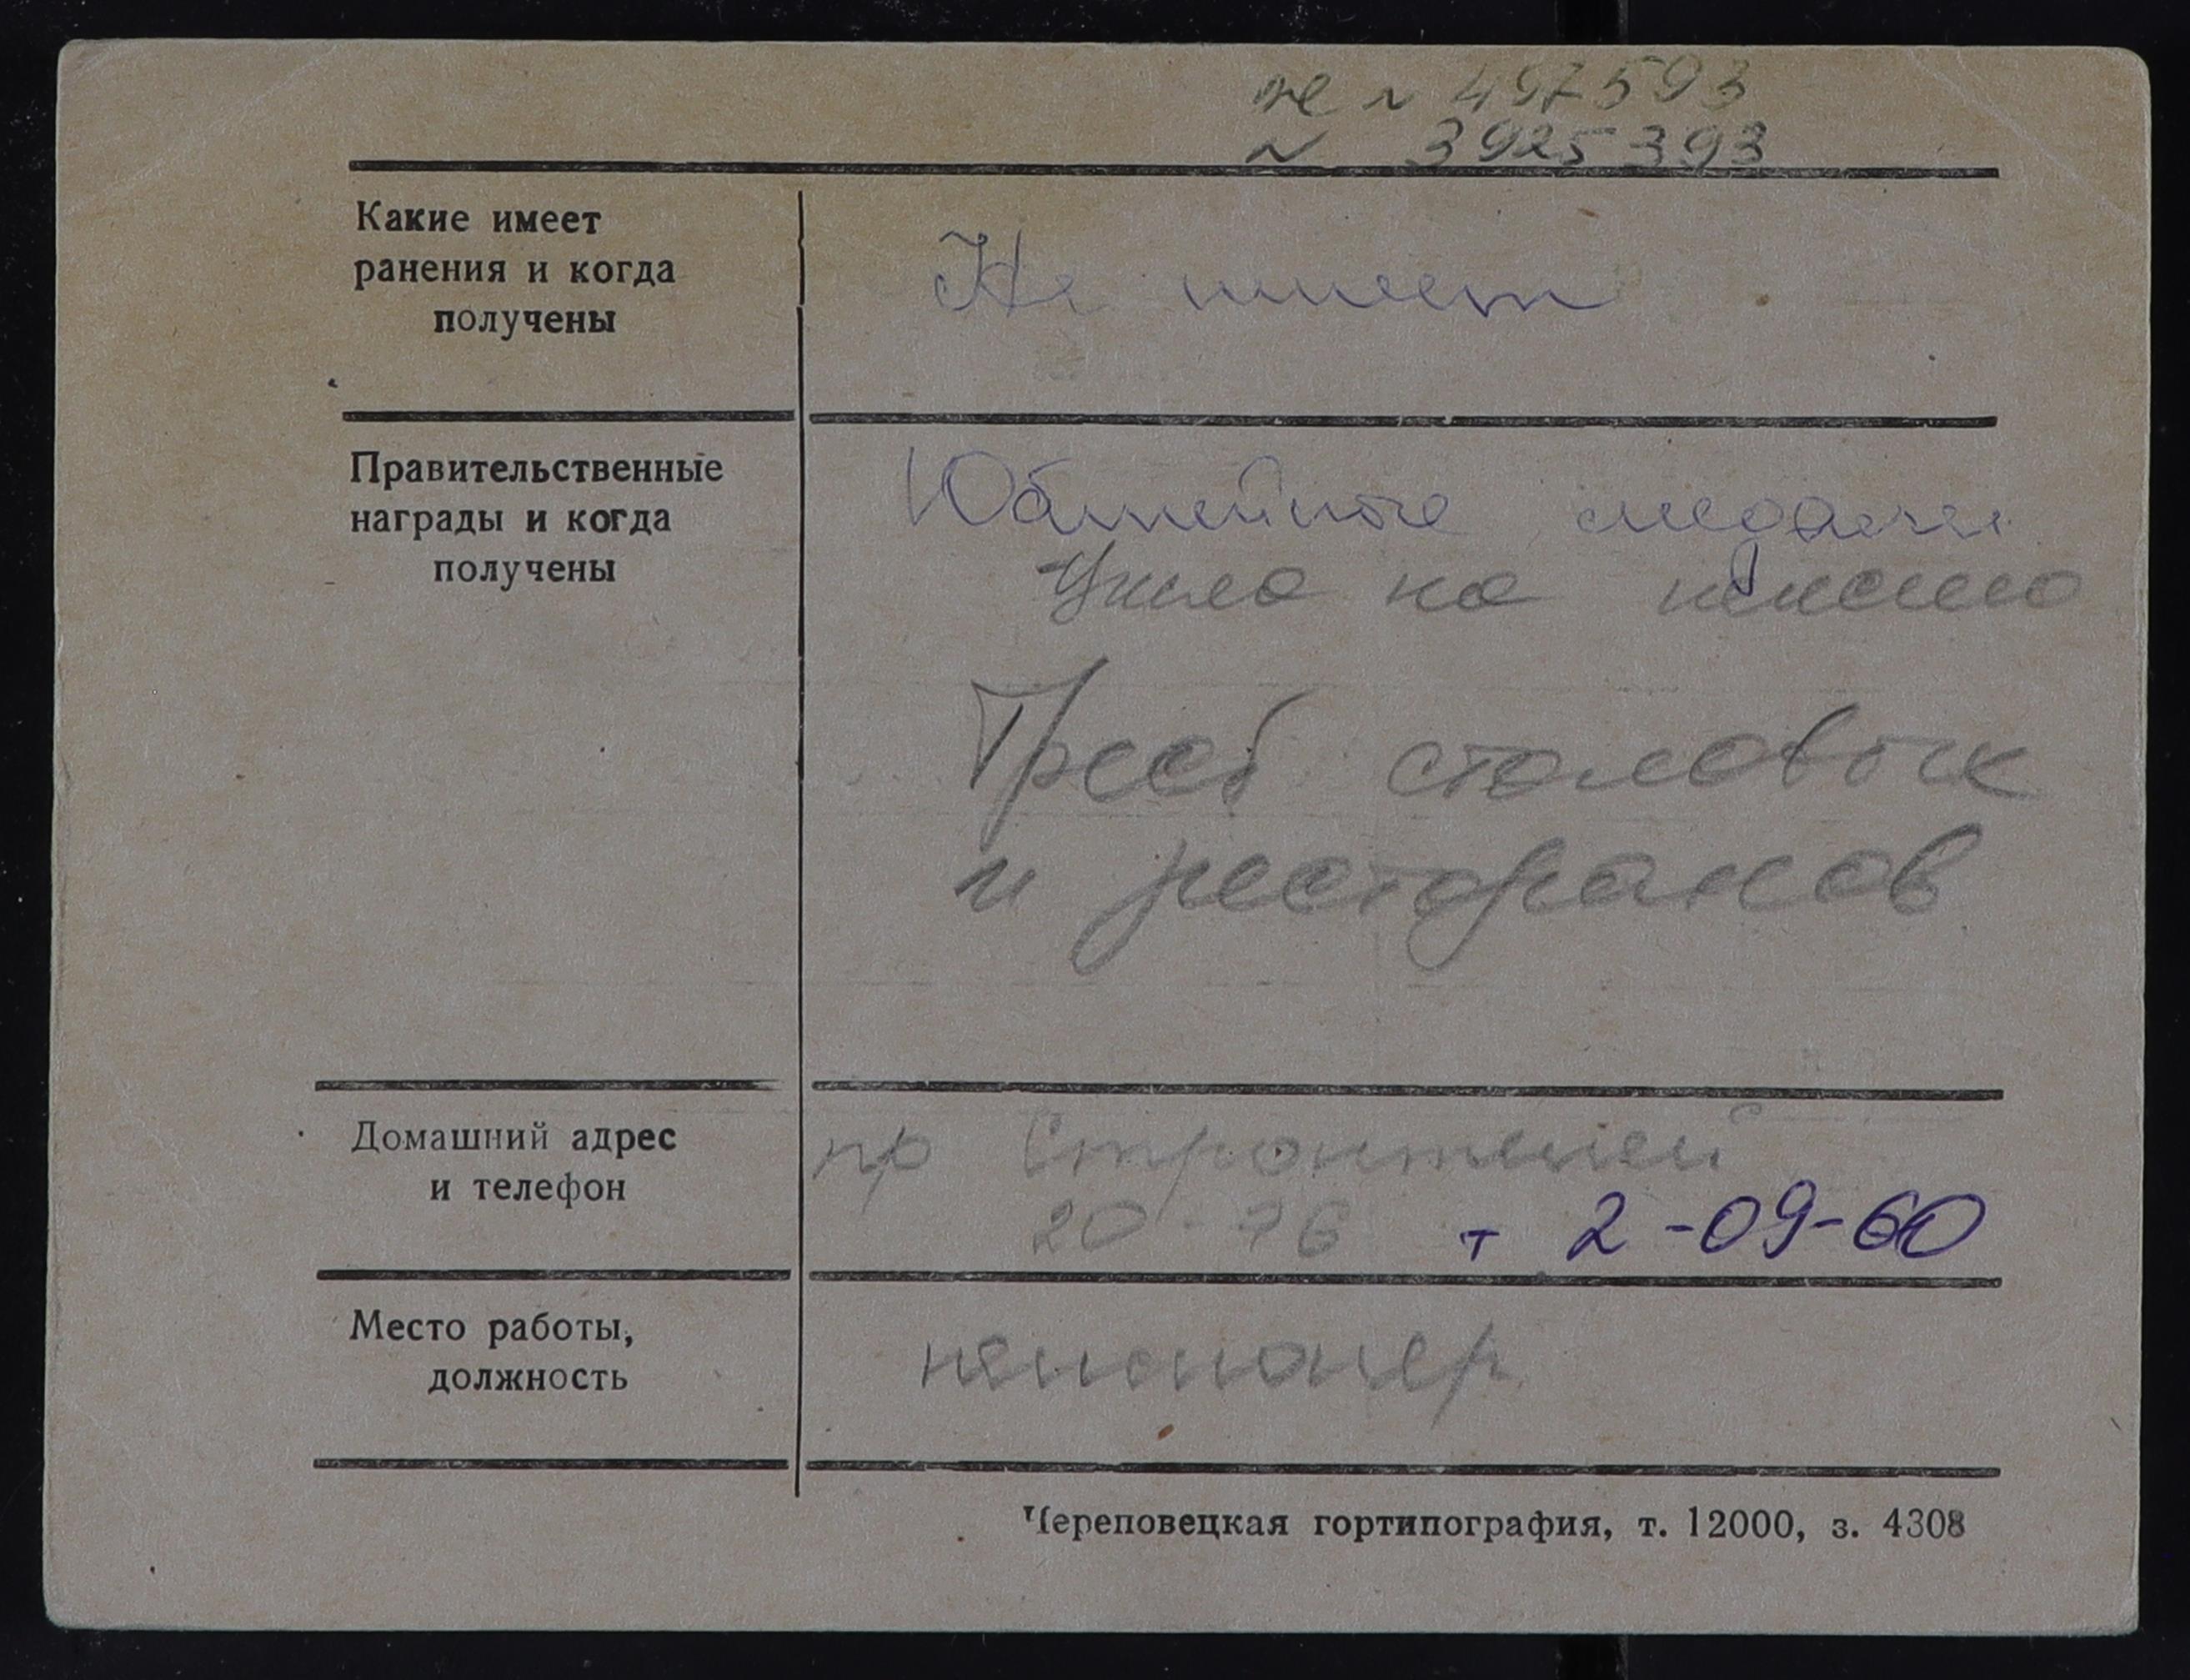 № 497593
№ 3925393
Какие имеет
ранения и когда
получены
Не имеет
Правительственные
награды и когда
получены
Юбилейные медали
Ушла на пенсию
Трест столовых
и ресторанов
Домашний адрес
и телефон
пр Строителей
20-76 т 2-09-60
Место работы,
должность
пенсионер
Череповецкая гортипография, т. 12000, з. 4308